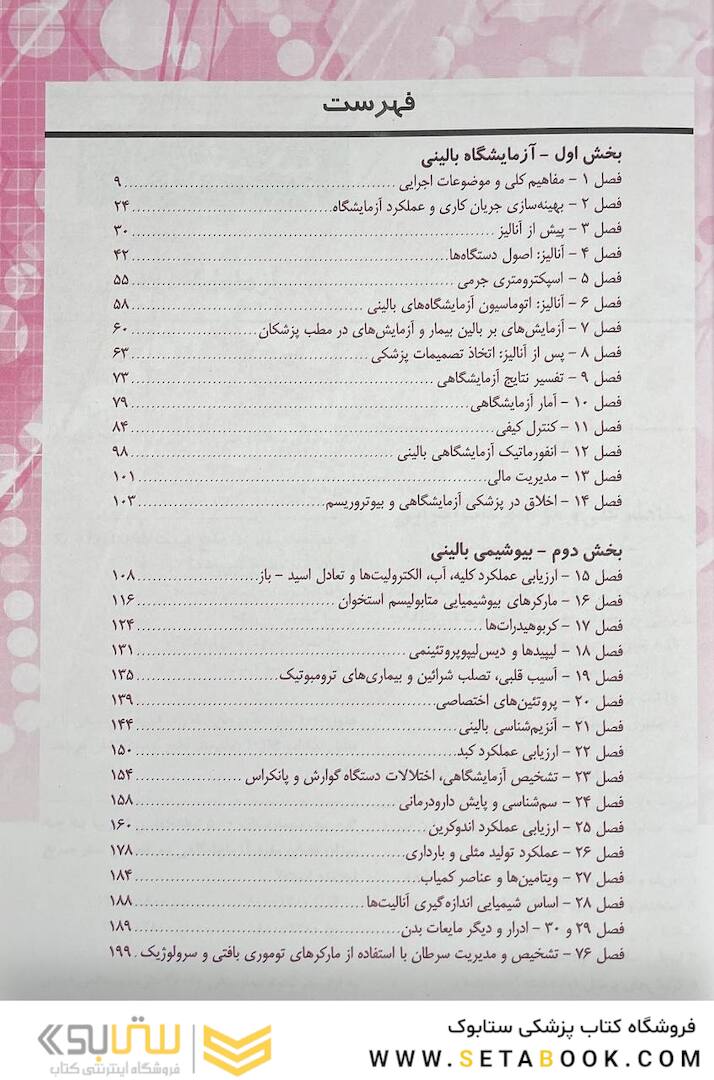 فهرست
بخش اول - آزمایشگاه بالینی
فصل ۱ - مفاهیم کلی و موضوعات اجرایی ........ ۹
فصل ۲ - بهینه‌سازی جریان کاری و عملکرد آزمایشگاه ........ ۲۴
فصل ۳ - پیش از آنالیز ........ ۳۰
فصل ۴ - آنالیز: اصول دستگاه‌ها ........ ۴۲
فصل ۵ - اسپکترومتری جرمی ........ ۵۵
فصل ۶ - آنالیز: اتوماسیون آزمایشگاه‌های بالینی ........ ۵۸
فصل ۷ - آزمایش‌های بر بالین بیمار و آزمایش‌های در مطب پزشکان ........ ۶۰
فصل ۸ - پس از آنالیز: اتخاذ تصمیمات پزشکی ........ ۶۳
فصل ۹ - تفسیر نتایج آزمایشگاهی ........ ۷۳
فصل ۱۰ - آمار آزمایشگاهی ........ ۷۹
فصل ۱۱ - کنترل کیفی ........ ۸۴
فصل ۱۲ - انفورماتیک آزمایشگاهی بالینی ........ ۹۸
فصل ۱۳ - مدیریت مالی ........ ۱۰۱
فصل ۱۴ - اخلاق در پزشکی آزمایشگاهی و بیوتروریسم ........ ۱۰۳
بخش دوم - بیوشیمی بالینی
فصل ۱۵ - ارزیابی عملکرد کلیه، آب، الکترولیت‌ها و تعادل اسید - باز ........ ۱۰۸
فصل ۱۶ - مارکرهای بیوشیمیایی متابولیسم استخوان ........ ۱۱۶
فصل ۱۷ - کربوهیدرات‌ها ........ ۱۲۴
فصل ۱۸ - لیپیدها و دیس‌لیپوپروتئینمی ........ ۱۳۱
فصل ۱۹ - آسیب قلبی، تصلب شرائین و بیماری‌های ترومبوتیک ........ ۱۳۵
فصل ۲۰ - پروتئین‌های اختصاصی ........ ۱۳۹
فصل ۲۱ - آنزیم‌شناسی بالینی ........ ۱۴۴
فصل ۲۲ - ارزیابی عملکرد کبد ........ ۱۵۰
فصل ۲۳ - تشخیص آزمایشگاهی، اختلالات دستگاه گوارش و پانکراس ........ ۱۵۴
فصل ۲۴ - سم‌شناسی و پایش دارودرمانی ........ ۱۵۸
فصل ۲۵ - ارزیابی عملکرد اندوکرین ........ ۱۶۰
فصل ۲۶ - عملکرد تولید مثلی و بارداری ........ ۱۷۸
فصل ۲۷ - ویتامین‌ها و عناصر کمیاب ........ ۱۸۴
فصل ۲۸ - اساس شیمیایی اندازه‌گیری آنالیت‌ها ........ ۱۸۸
فصل ۲۹ و ۳۰ - ادرار و دیگر مایعات بدن ........ ۱۸۹
فصل ۷۶ - تشخیص و مدیریت سرطان با استفاده از مارکرهای توموری بافتی و سرولوژیک . ۱۹۹
فروشگاه کتاب پزشکی ستابوک
WWW.SETABOOK.COM
ستابوک
فروشگاه اینترنتی کتاب